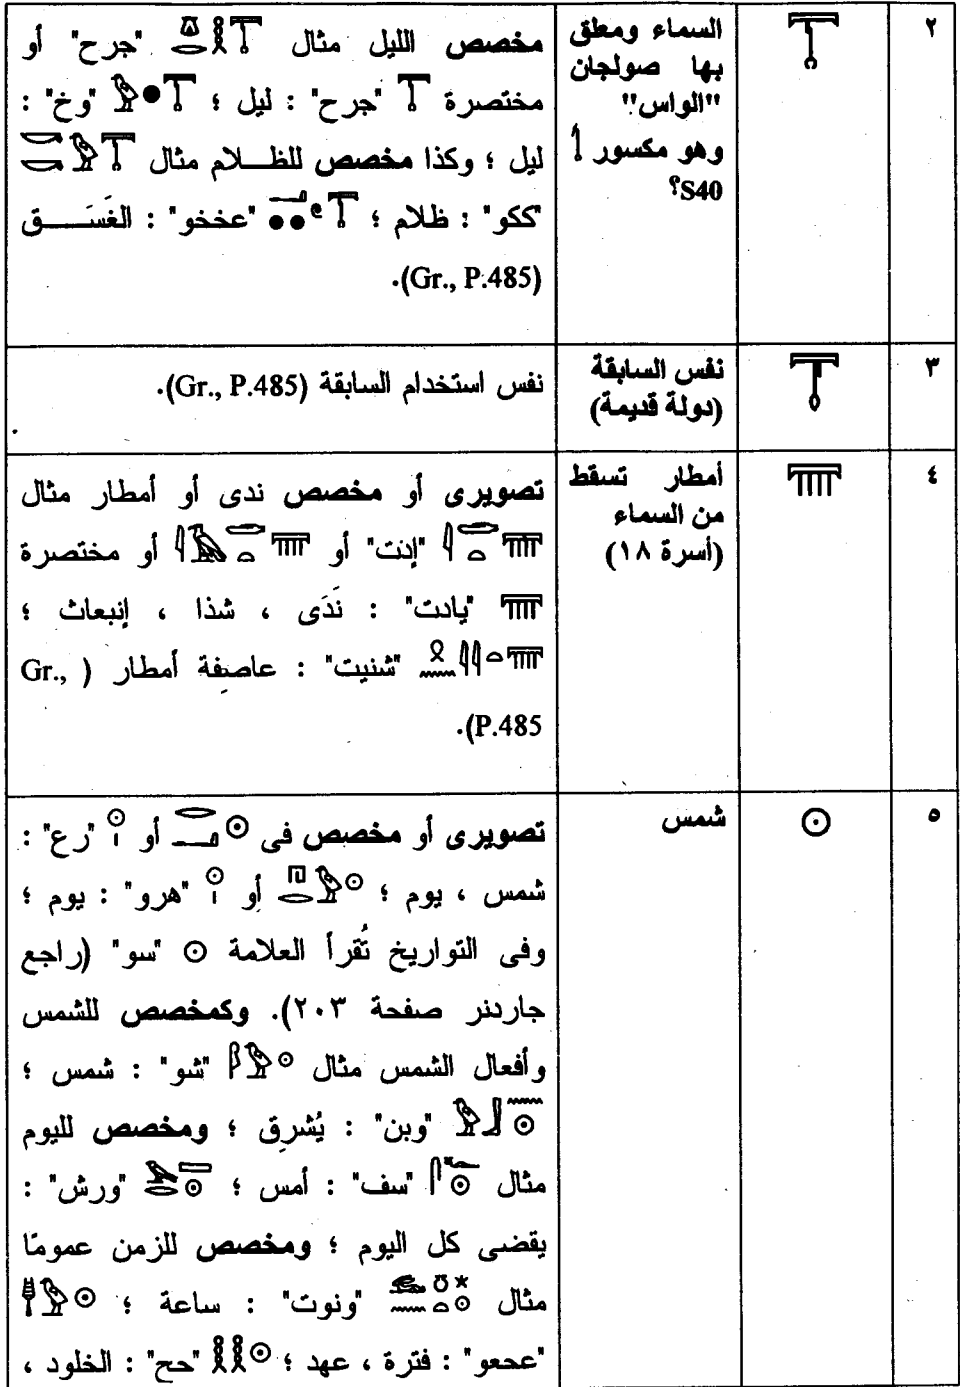 ٢
السماء ومعلق
بها صولجان
"الواس"
وهو مكسور
S40؟
مخصص الليل مثال "جرح" أو
مختصرة "جرح" : ليل ؛ "وخ" :
ليل ؛ وكذا مخصص للظـــلام مثال
"ككو" : ظلام ؛ "عخخو" : الغَسَـــــق
(Gr., P.485).
٣
نفس السابقة
(دولة قديمة)
نفس استخدام السابقة (Gr., P.485).
٤
أمطار تسقط
من السماء
(أسرة ١٨)
تصويرى أو مخصص ندى أو أمطار مثال
"إدت" أو أو مختصرة
"يادت" : نَدَى ، شذا ، إنبعاث ؛
"شنيت" : عاصفة أمطار (Gr.,
P.485).
٥
شمس
تصويرى أو مخصص فى أو "رع" :
شمس ، يوم ؛ أو "هرو" : يوم ؛
وفى التواريخ تُقرأ العلامة "سو" (راجع
جاردنر صفحة ٢٠٣). وكمخصص للشمس
وأفعال الشمس مثال "شو" : شمس ؛
"وبن" : يُشرِق ؛ ومخصص لليوم
مثال "سف" : أمس ؛ "ورش" :
يقضى كل اليوم ؛ ومخصص للزمن عمومًا
مثال "ونوت" : ساعة ؛
"عحعو" : فترة ، عهد ؛ "حح" : الخلود ،